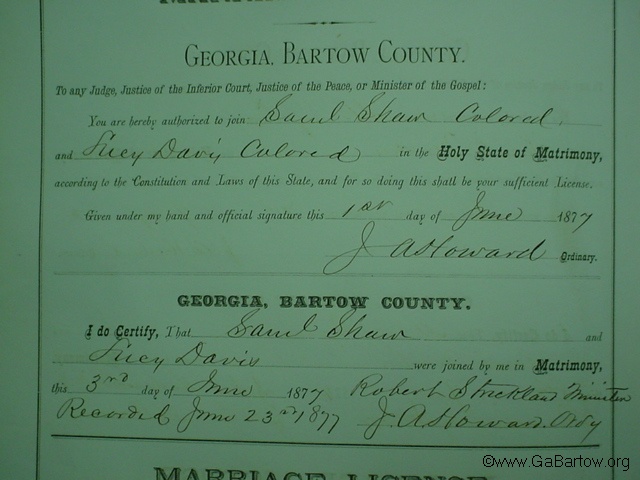 GEORGIA, BARTOW COUNTY.
To any Judge, Justice of the Inferior Court, Justice of the Peace, or Minister of the Gospel:
You are hereby authorized to join Saml Shaw Colored,
and Lucy Davis Colored in the Holy State of Matrimony,
according to the Constitution and Laws of this State, and for so doing this shall be your sufficient License.
Given under my hand and official signature this 1st day of June 1877
J A Howard Ordinary.
GEORGIA, BARTOW COUNTY.
I do Certify, That Saml Shaw and
Lucy Davis were joined by me in Matrimony,
this 3rd day of June 1877 Robert Strickland Minister
Recorded June 23rd 1877 J. A Howard. Ordy
MARRIAGE LICENSE
©www.GaBartow.org